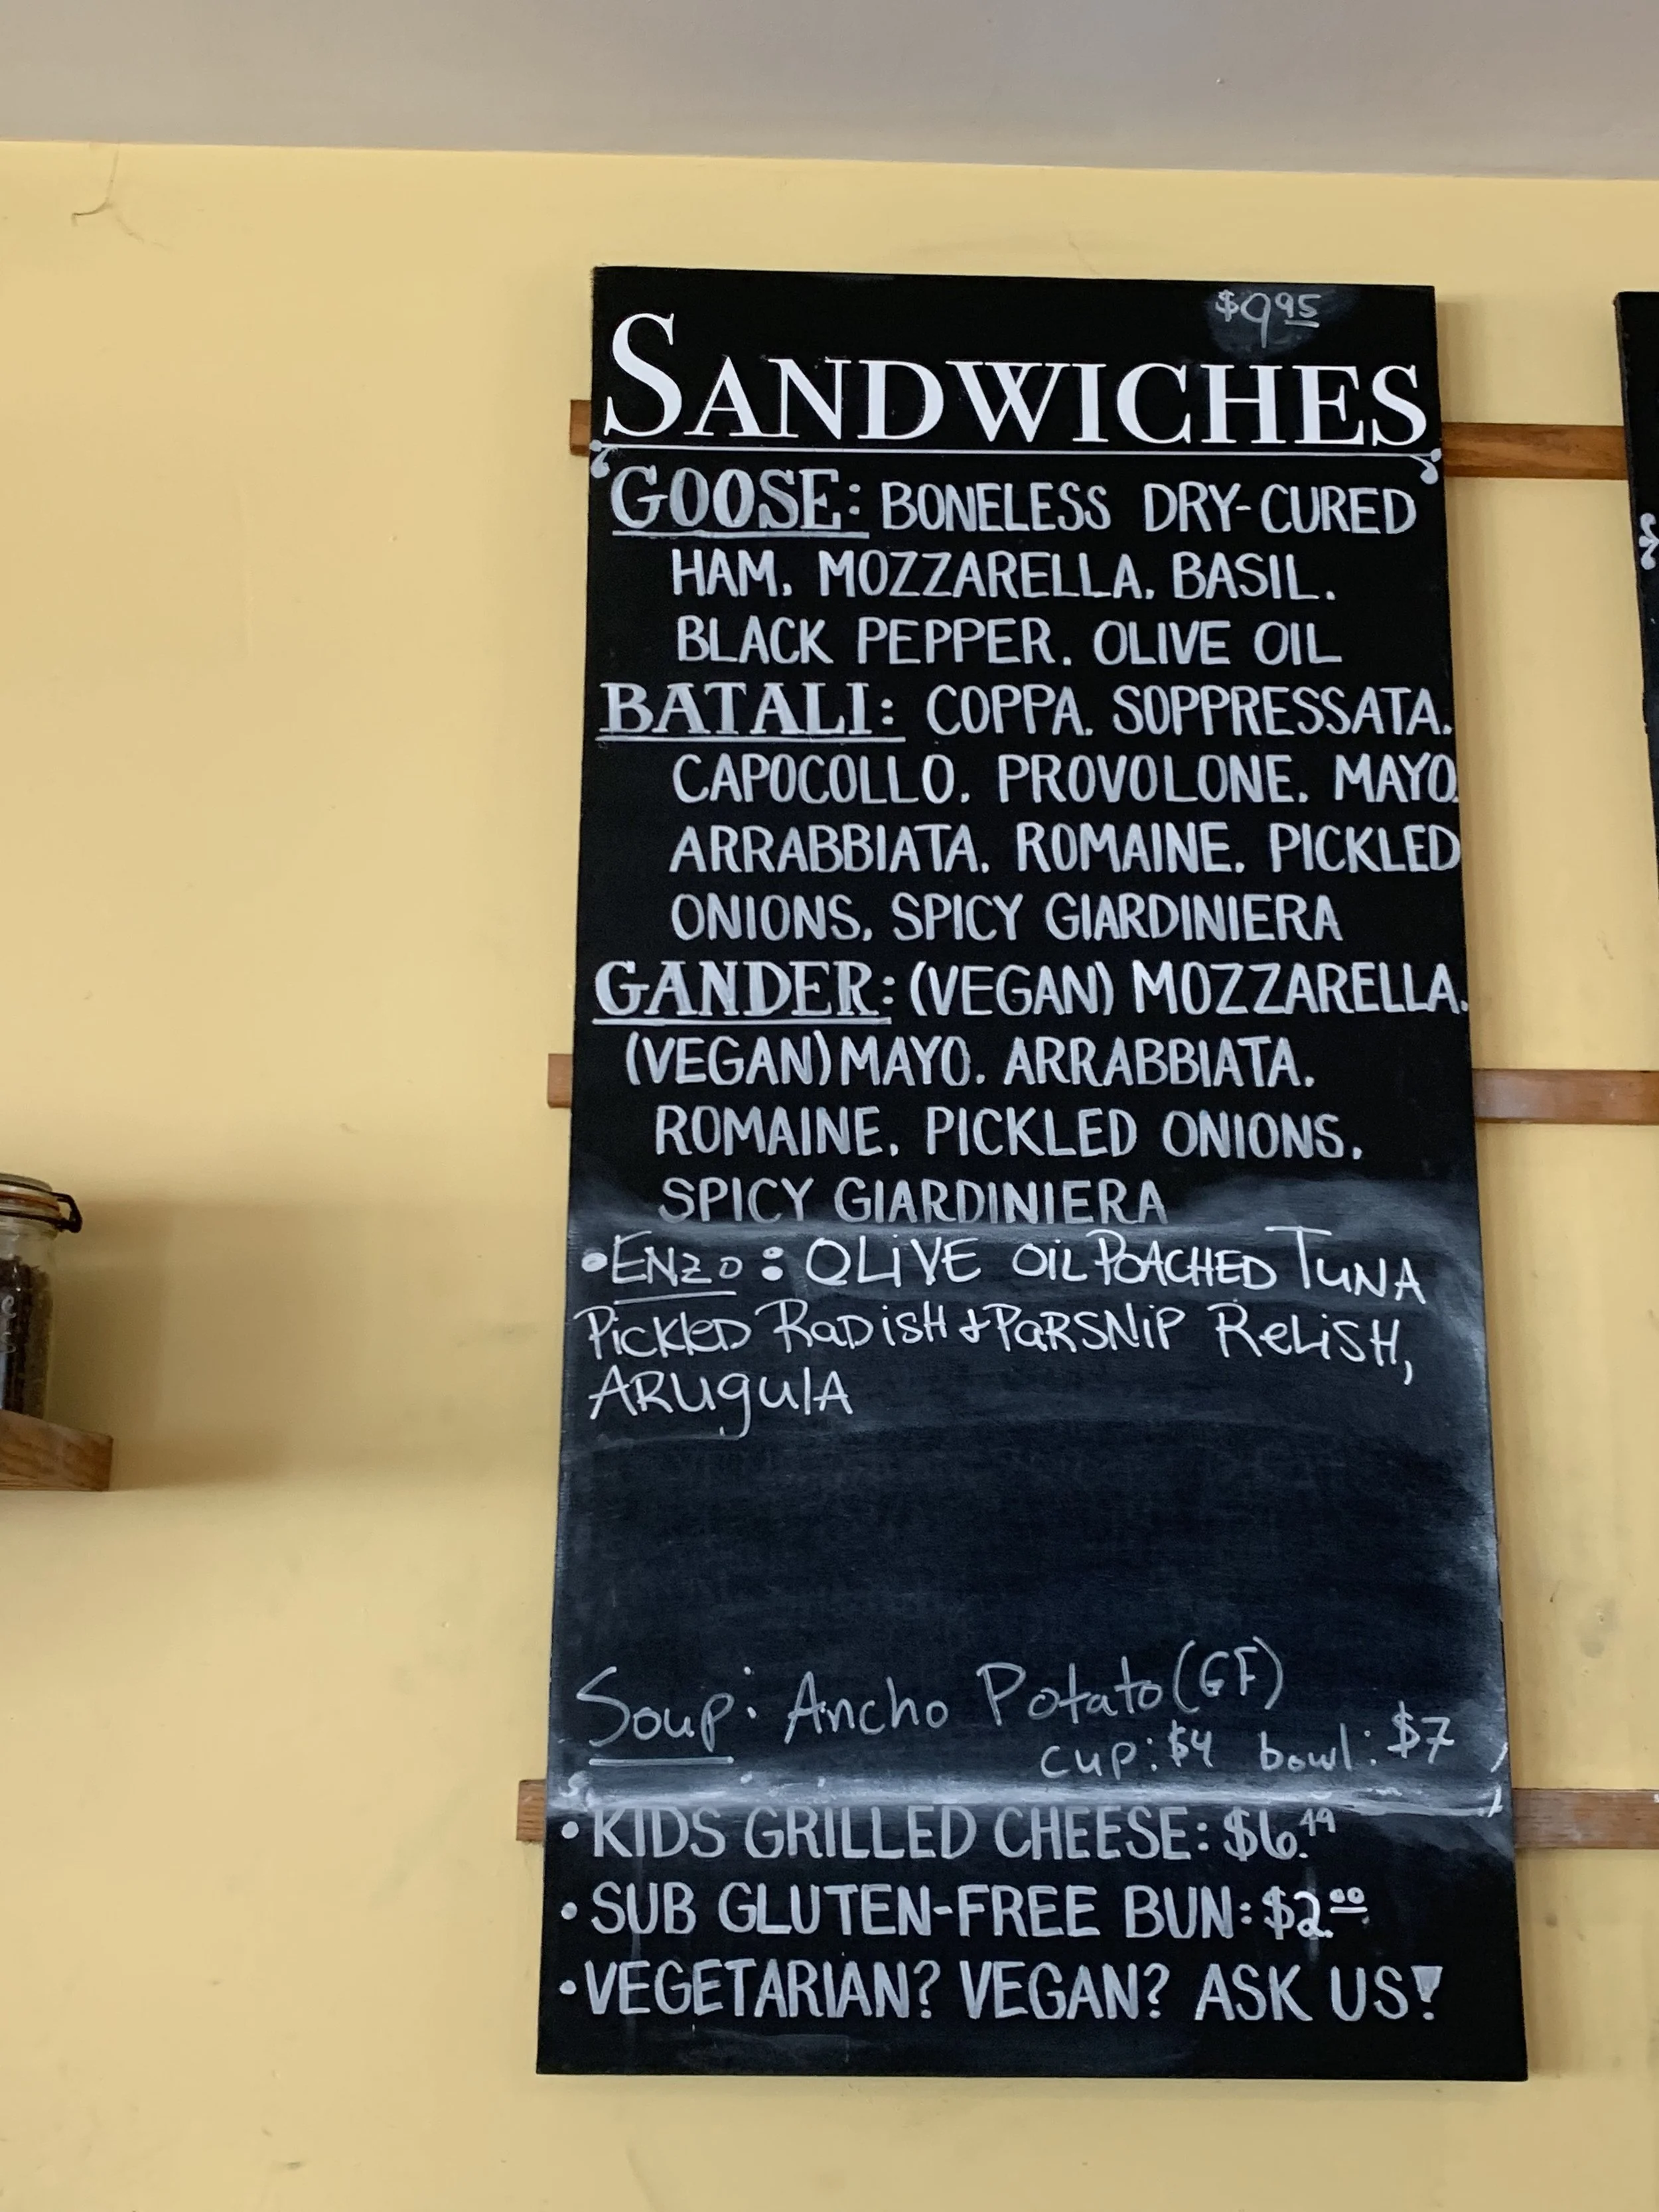 $9.95
SANDWICHES
GOOSE: BONELESS DRY-CURED
HAM, MOZZARELLA, BASIL,
BLACK PEPPER, OLIVE OIL
BATALI: COPPA, SOPPRESSATA,
CAPOCOLLO, PROVOLONE, MAYO,
ARRABBIATA, ROMAINE, PICKLED
ONIONS, SPICY GIARDINIERA
GANDER: (VEGAN) MOZZARELLA,
(VEGAN) MAYO, ARRABBIATA,
ROMAINE, PICKLED ONIONS,
SPICY GIARDINIERA
•ENZO: OLiVE OiL POACHED TUNA
PickleD RaDiSH + PaRSNiP ReLiSH,
ARugulA
Soup: Ancho Potato (GF)
cup: $4 bowl: $7
• KIDS GRILLED CHEESE: $6.49
• SUB GLUTEN-FREE BUN: $2.00
• VEGETARIAN? VEGAN? ASK US!